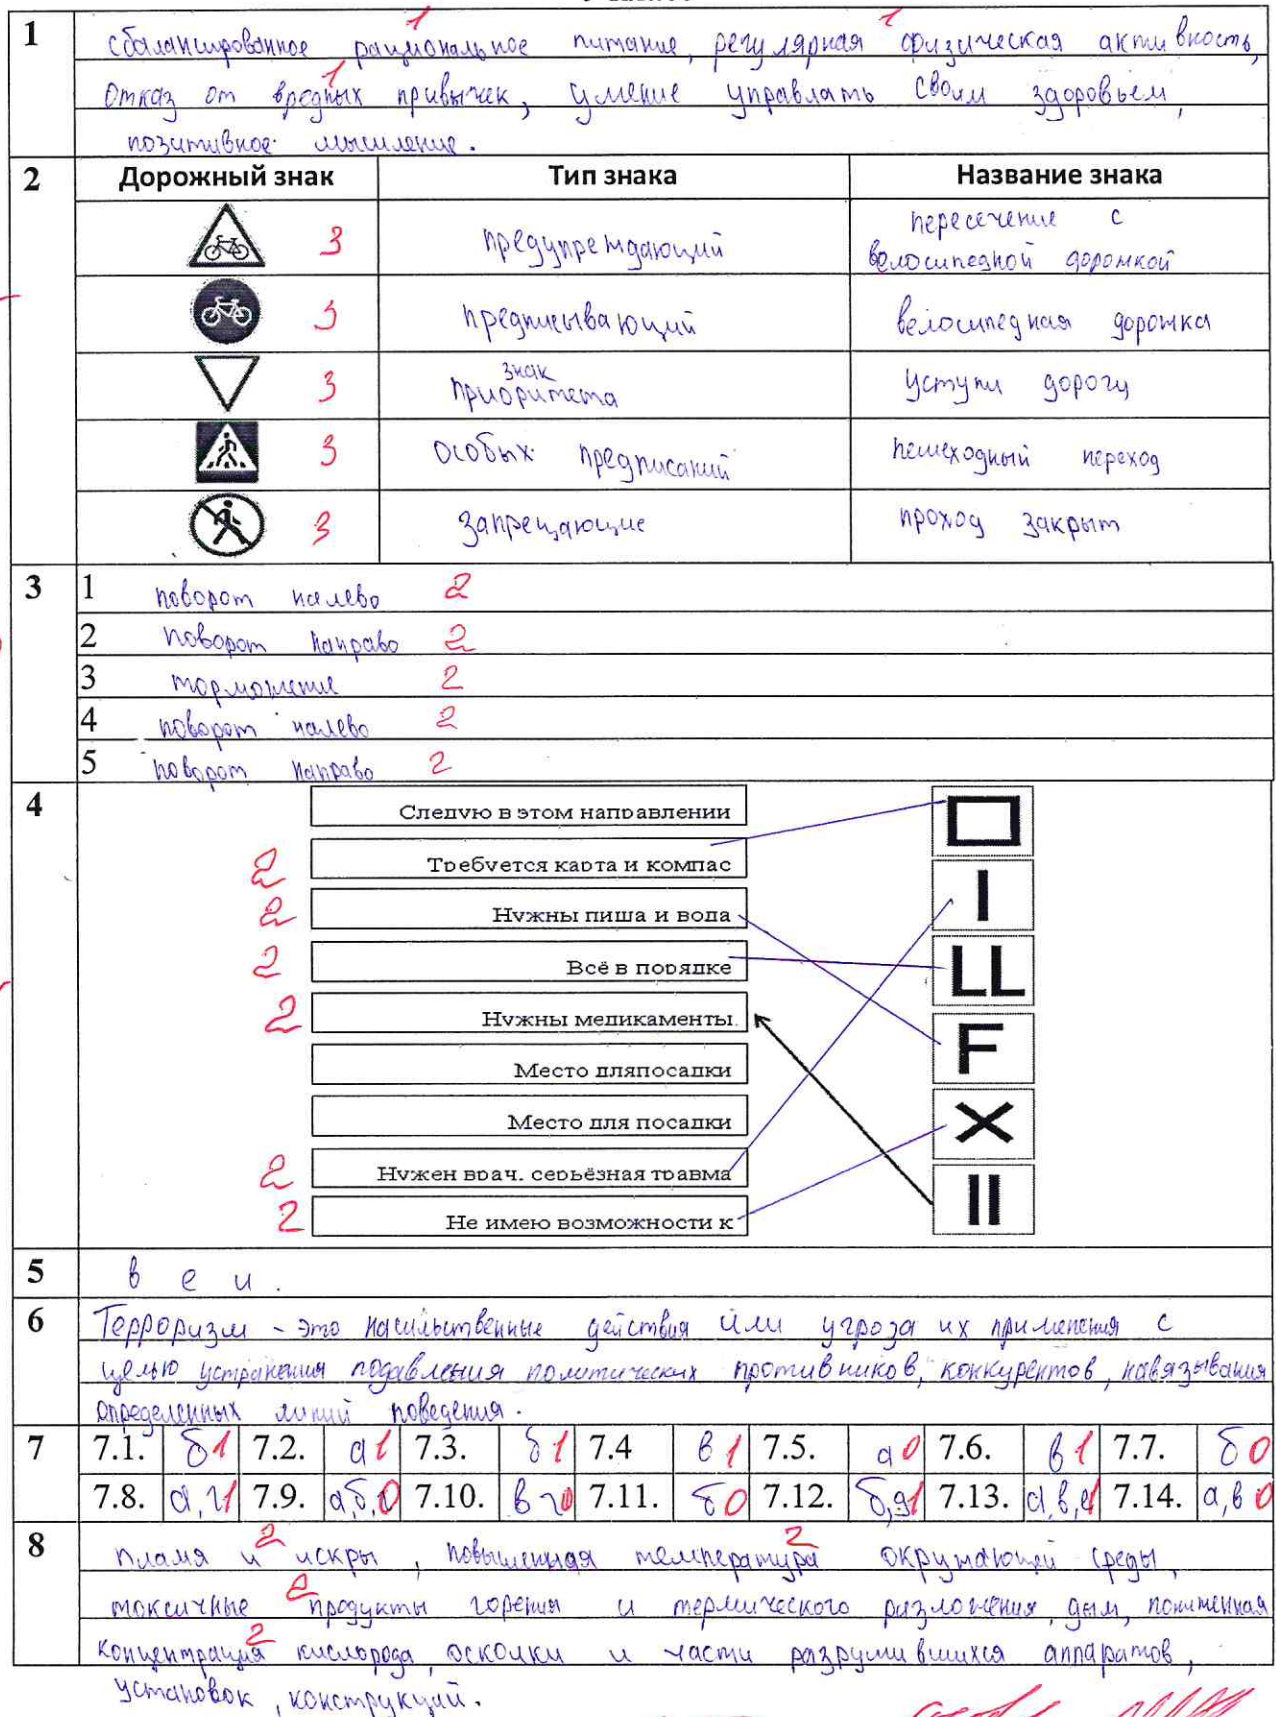 1 сбалансированное рациональное питание, регулярная физическая активность,
1 1
отказ от вредных привычек, умение управлять своим здоровьем,
1
позитивное мышление.
2 Дорожный знак Тип знака Название знака
3 предупреждающий пересечение с
велосипедной дорожкой
3 предписывающий велосипедная дорожка
3 знак
приоритета уступи дорогу
3 особых предписаний пешеходный переход
3 запрещающие проход закрыт
3 1 поворот налево 2
2 поворот направо 2
3 торможение 2
4 поворот налево 2
5 поворот направо 2
4 Следую в этом направлении
2 Требуется карта и компас
2 Нужны пища и вода I
2 Всё в порядке LL
2 Нужны медикаменты
Место дляпосадки F
Место для посадки X
2 Нужен врач. серьёзная травма
2 Не имею возможности к II
5 в е и.
6 Терроризм - это насильственные действия или угроза их применения с
целью устранения подавления политических противников, конкурентов, навязывания
определенных линий поведения.
7 7.1. б 1 7.2. а 1 7.3. б 1 7.4 в 1 7.5. а 0 7.6. в 1 7.7. б 0
7.8. а, г 1 7.9. а б, 0 7.10. в г 0 7.11. б 0 7.12. б, д 1 7.13. а, в, е 1 7.14. а, в 0
8 пламя и искры, повышенная температура окружающей среды,
2 2
токсичные продукты горения и термического разложения, дым, пониженная
2
концентрация кислорода, осколки и части разрушившихся аппаратов,
2
установок, конструкций.